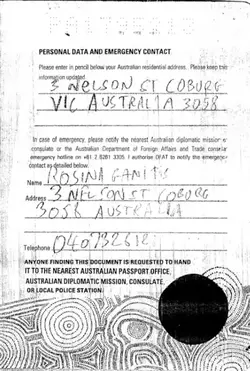 PERSONAL DATA AND EMERGENCY CONTACT
Please enter in pencil below your Australian residential address. Please keep this
information updated.
3 NELSON ST COBURG
VIC AUSTRALIA 3058
In case of emergency, please notify the nearest Australian diplomatic mission or
consulate or the Australian Department of Foreign Affairs and Trade consular
emergency hotline on +61 2 6261 3305. I authorise DFAT to notify the emergency
contact as detailed below.
Name ROSINA
Address 3 NELSON ST COBURG
3058 AUSTRALIA
Telephone
ANYONE FINDING THIS DOCUMENT IS REQUESTED TO HAND
IT TO THE NEAREST AUSTRALIAN PASSPORT OFFICE,
AUSTRALIAN DIPLOMATIC MISSION, CONSULATE,
OR LOCAL POLICE STATION.